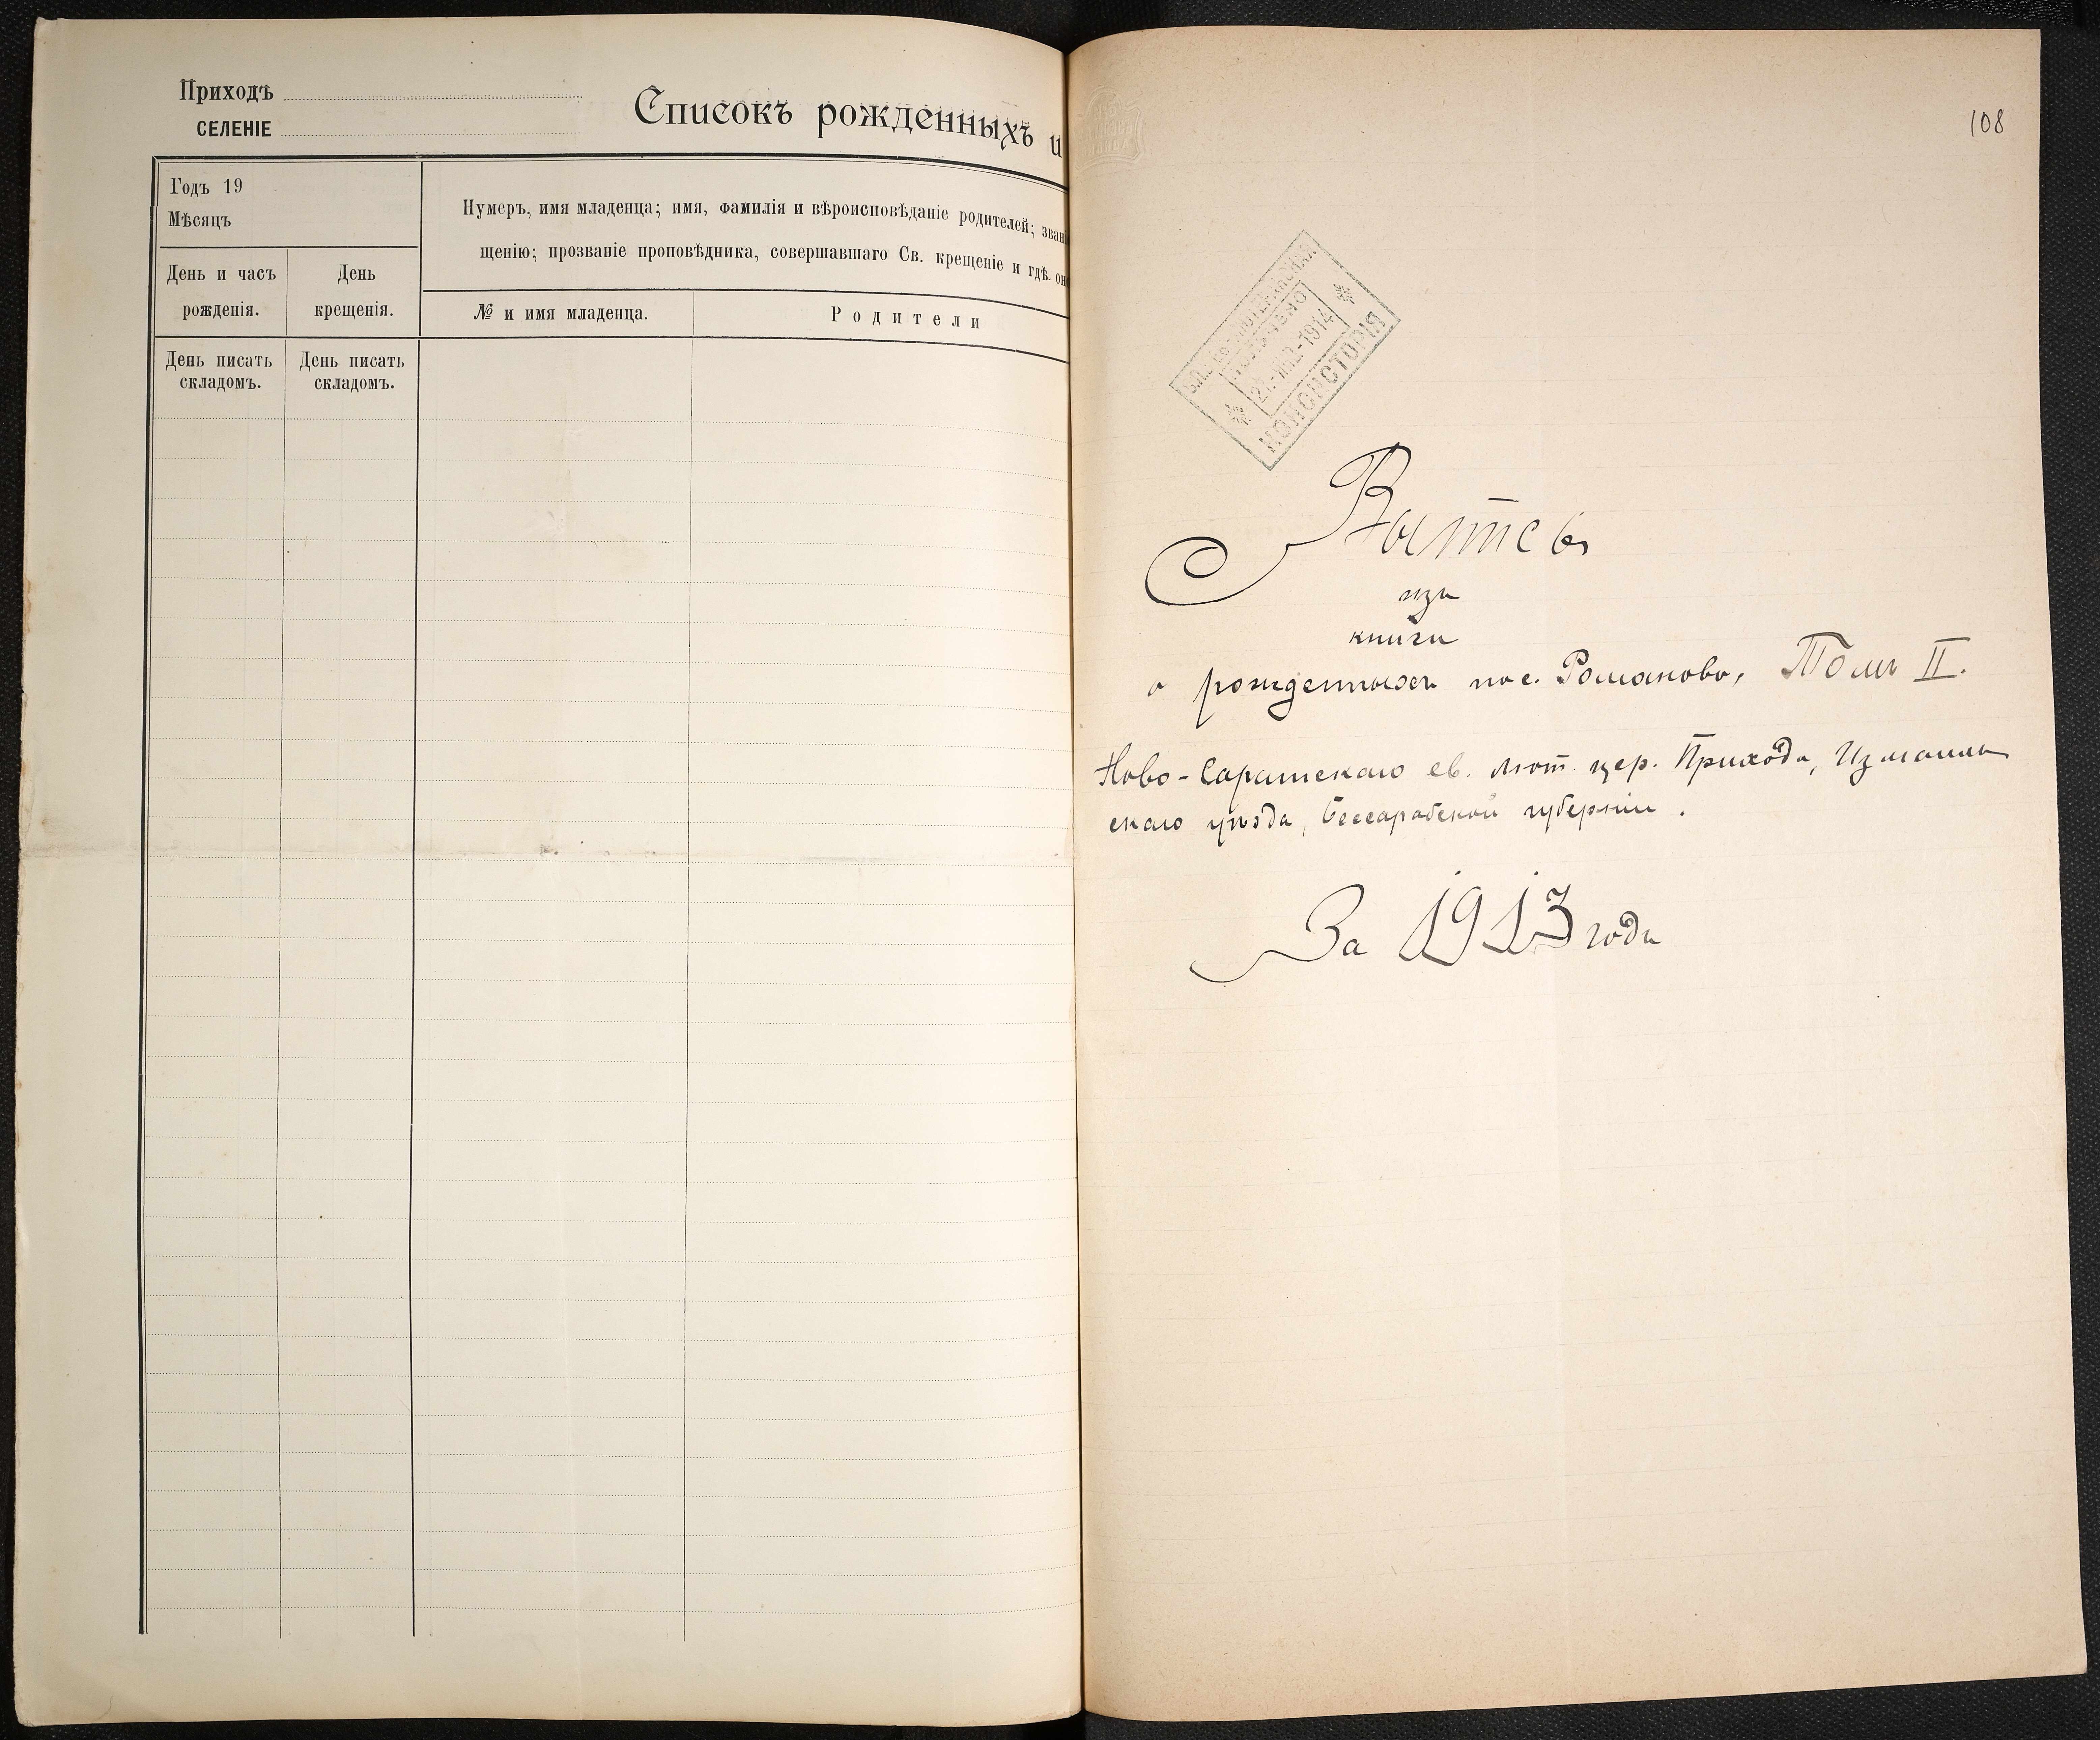 Приходъ
СЕЛЕНІЕ
Списокъ рожденныхъ и
Годъ 19
Мѣсяцъ
Нумеръ, имя младенца; имя, фамилія и вѣроисповѣданіе родителей; звані
щенію; прозваніе проповѣдника, совершавшаго Св. крещеніе и гдѣ он
День и часъ рожденія.
День крещенія.
№ и имя младенца.
Родители
День писать складомъ.
День писать складомъ.
108
ЛЮТЕРАНСКАЯ
ПОЛУЧЕНО
1914
КОНСИСТОРІЯ
Выпись
изъ
книги
о рожденныхъ пос. Романово, Томъ II.
Ново-Саратскаго ев. лют. цер. Прихода, Измаиль
скаго уѣзда, Бессарабской губерніи.
За 1913 годъ